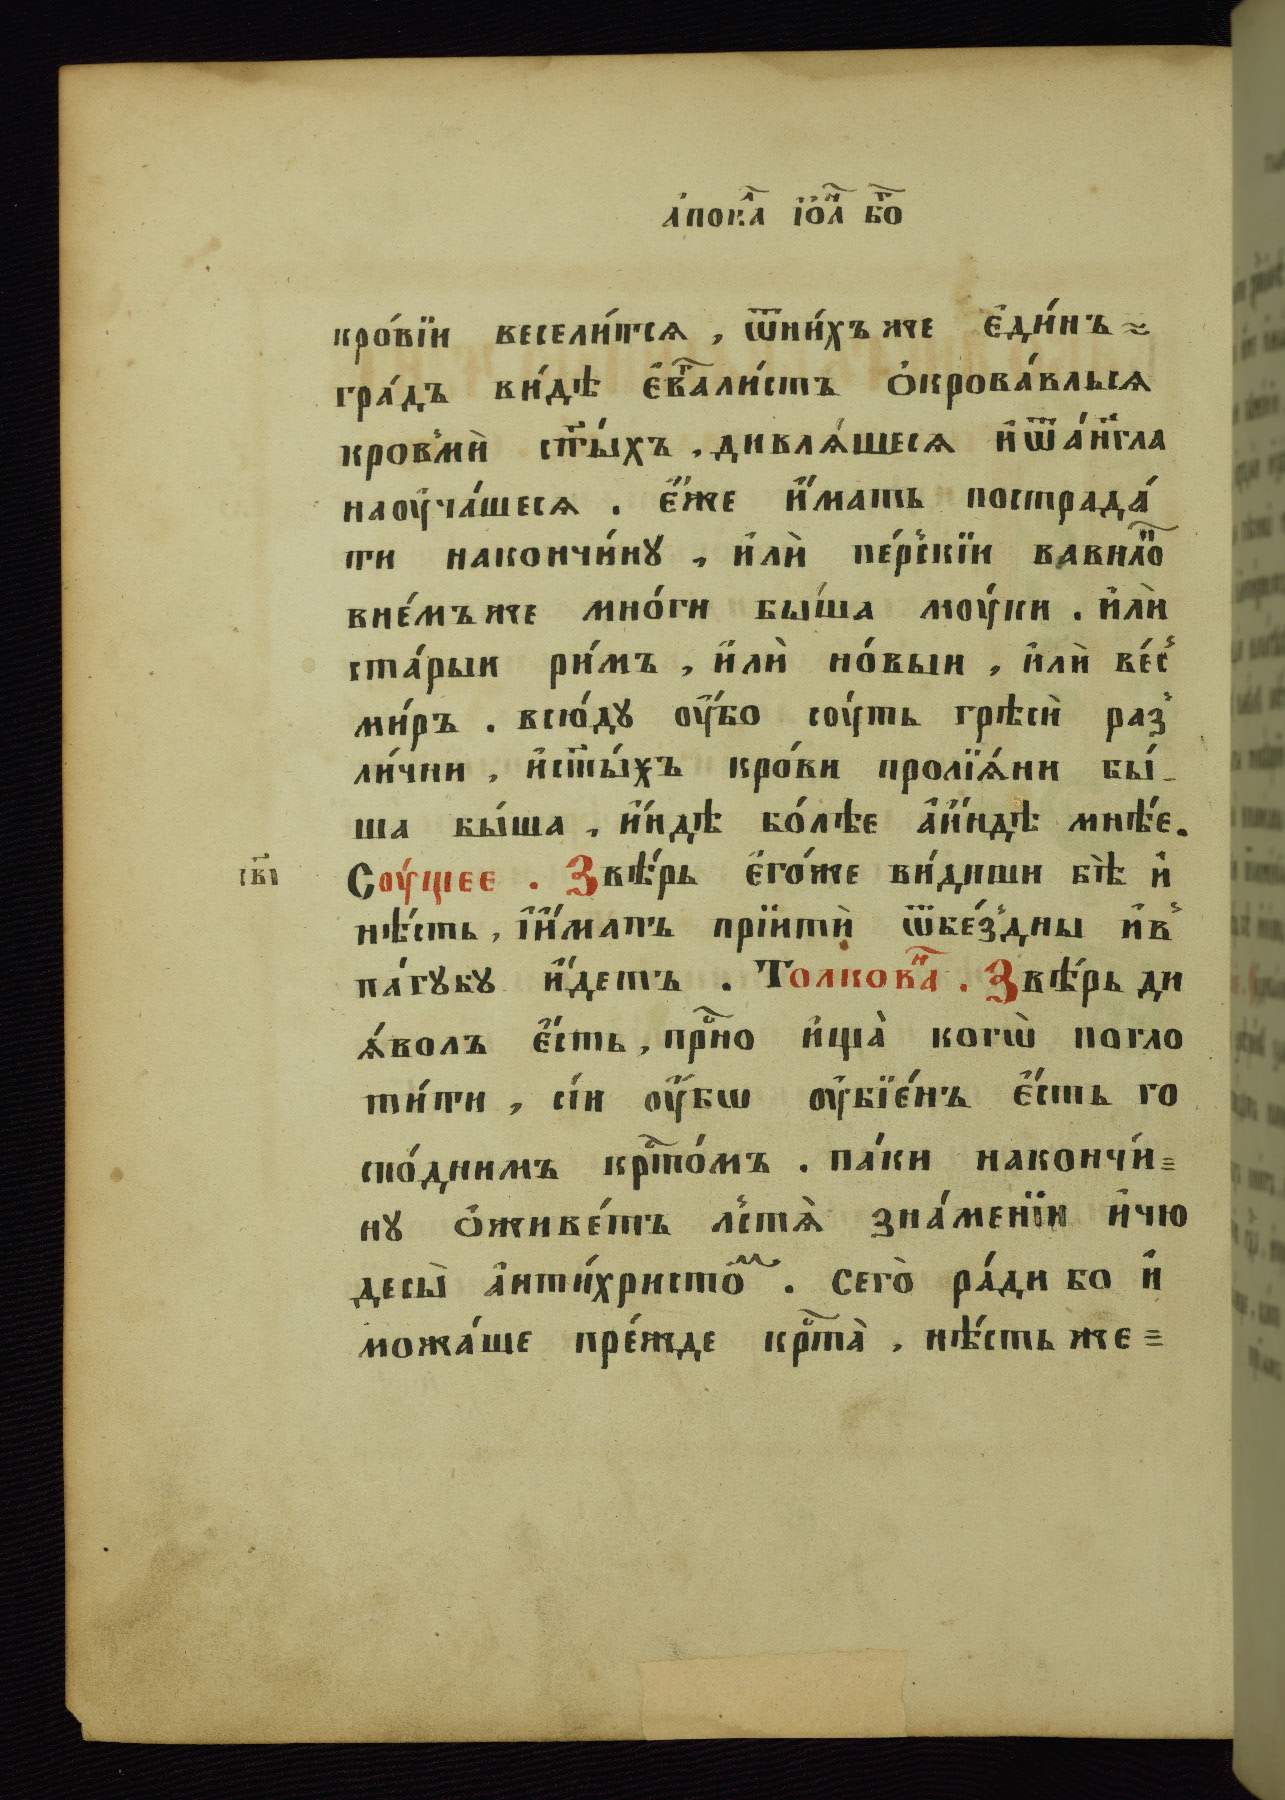 а҆пока́л і҆ѡ҆а́н бг҃о
кро́вїи веселѝтсѧ , ѿни́хъ же є҆ди́нъ ~
гра́дъ ви́дѣ є҆ѵⷢ҇али́стъ ѻ҆крова́вльсѧ
кровмѝ ст҃ы́хъ , дивлѧ́шесѧ и҆ѿа́нг҃ла
наоу҆ча́шесѧ . є҆́же и҆́мать пострада́
ти накончи́нꙋ , и҆лѝ пе́рскїи вавило҃
вне́мъ же мно́ги бы́ша моу́ки . и҆лѝ
ста́рыи ри́мъ , и҆лѝ но́выи , и҆лѝ ве́с
ми́ръ . всю́дꙋ оу҆́бо соу́ть грѣсѝ раз
ли́чни , и҆ст҃ы́хъ кро́ви пролїѧ́ни бы́_
ша бы́ша , и҆́ндѣ бо́лѣе а҆и҆́ндѣ мнѣ́е.
св҃і
Соу́щее . Звѣ́рь є҆го́же ви́диши бѣ̀ и҆
нѣ́сть , і҆и҆́мать прїитѝ ѿбе́здны и҆в
па́гꙋбꙋ и҆́деть . Толкова҃ . Звѣ́рь ди
ѧ́волъ є҆́сть , прⷭ҇но и҆щѧ̀ когѡ̀ погло
ти́ти , сі́и оу҆́бѡ оу҆бїе́нъ є҆́сть го
спо́днимъ крⷭ҇то́мъ . па́ки накончи́=
нꙋ ѻ҆живе́тъ лстѧ̀ зна́менїи и҆чю
десы̀ а҆нти́христо́м . сего̀ ра́ди бо и҆
можа́ше пре́жде крⷭ҇та̀ , нѣ́сть же =